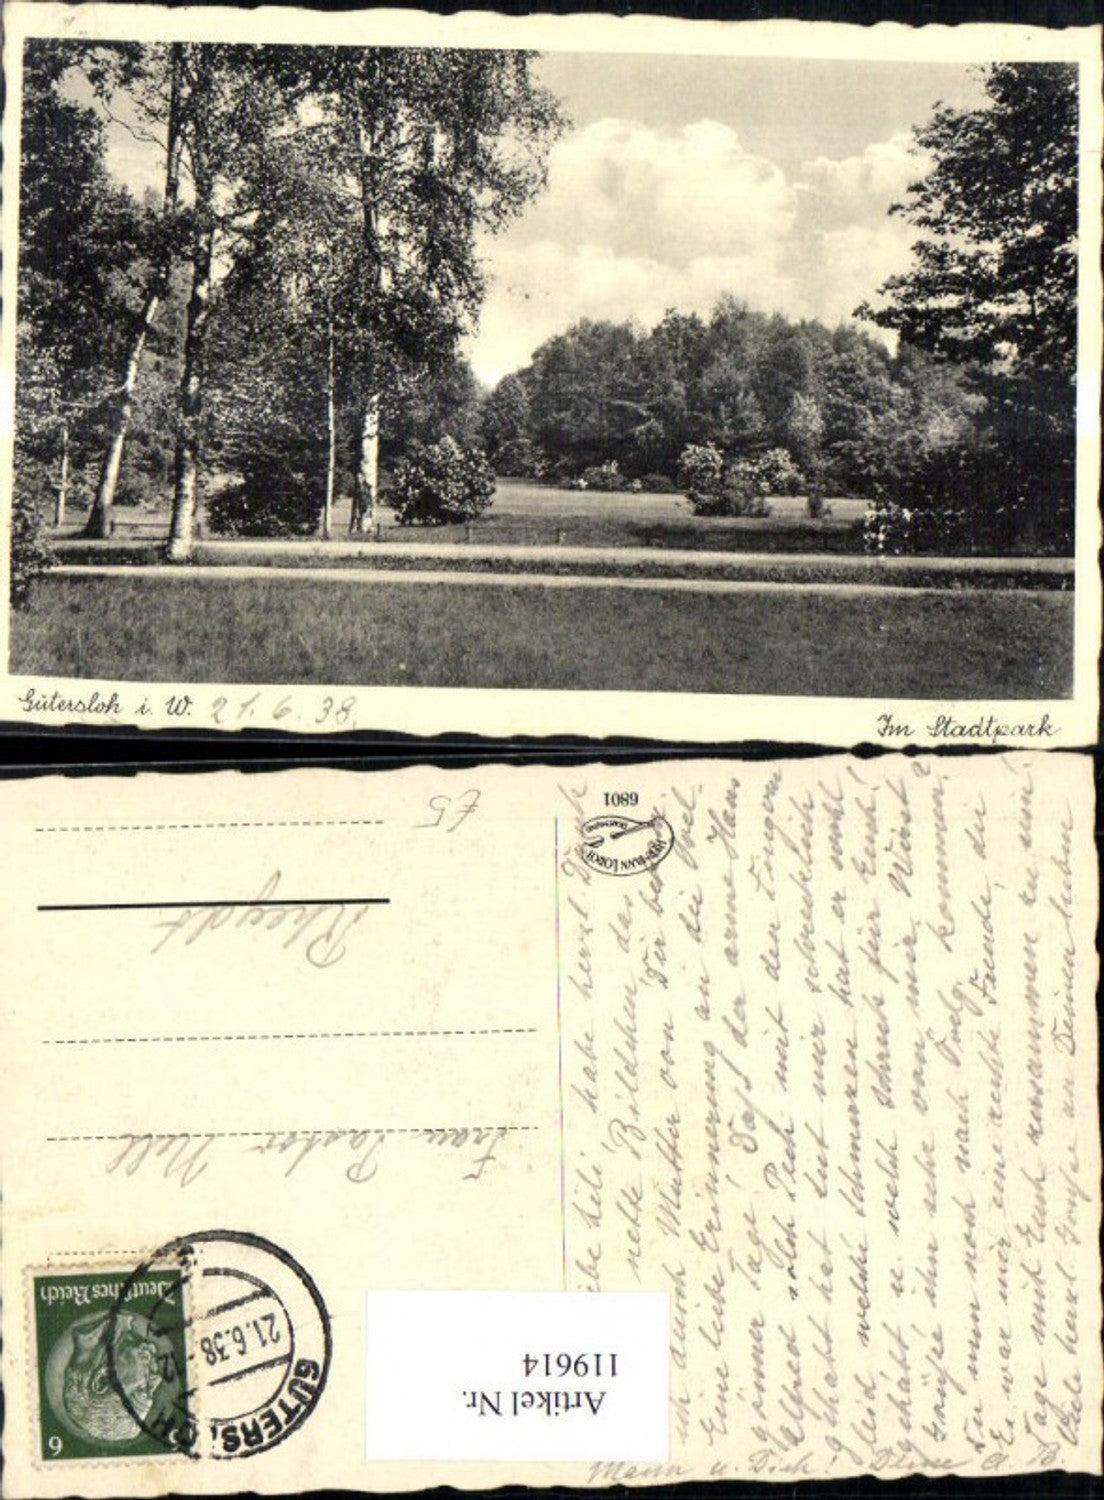 Gütersloh i. W. 21. 6. 38.
Im Stadtpark
6801
HERMANN LORCH
DORTMUND
£5
Rheydt
Frau Pastor Nell
Deutsches Reich
6
GÜTERSLOH
21.6.38.-12
Artikel Nr.
119614
habe herzl. Dank
nette Bildchen das
durch Mutter von Dir bekam.
Eine liebe Erinnerung an die
Tage! Daß der arme Hans
Alfred solch Pech mit den Fingern
gehabt hat tut mir schrecklich
leid welche Schmerzen hat er wohl
gehabt u. welch Schreck für Euch!
Grüße ihn sehr von mir. Wirst
Du nun noch nach Oelg. kommen?
Es war mir eine rechte Freude, die
Tage mit Euch zusammen zu sein!
Viele herzl. Grüße an Deinen lieben
Mann u. Dich! Deine A. B.